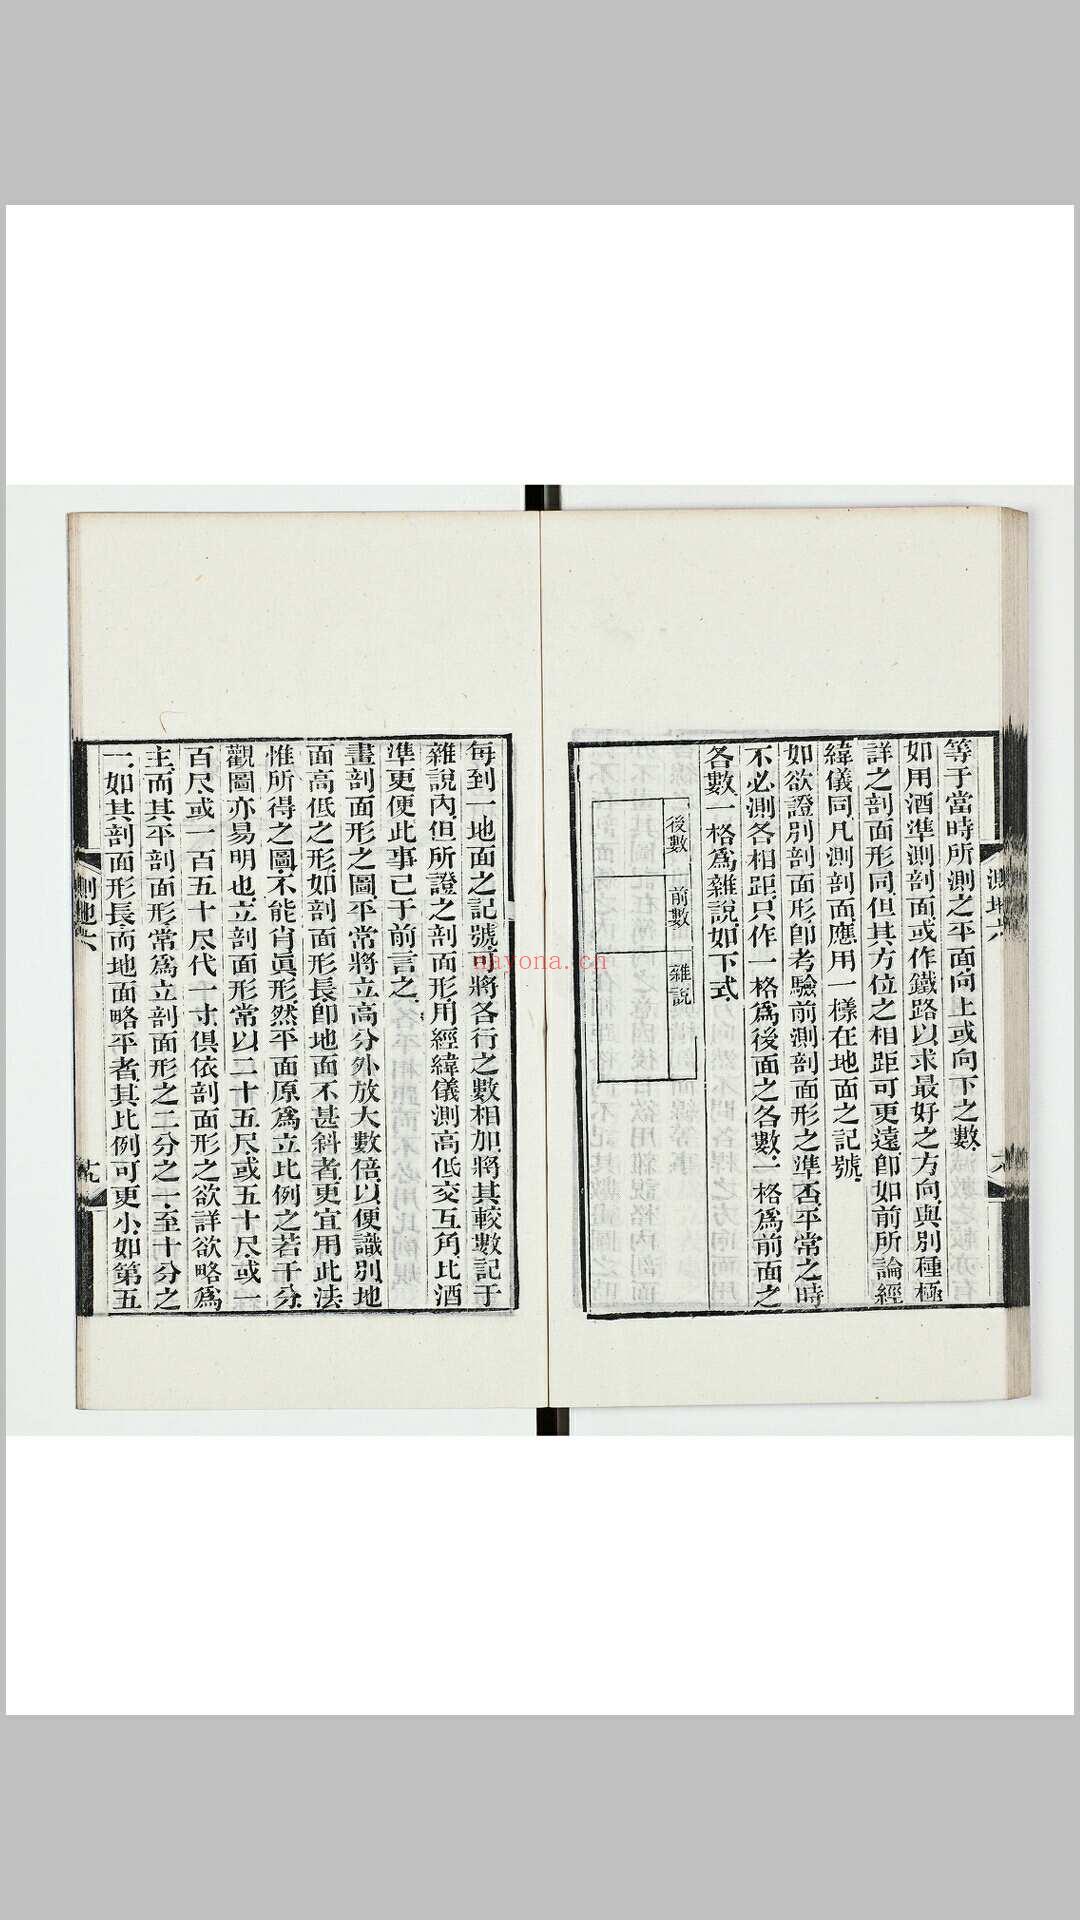 等于當時所測之平面向上或向下之數
如用酒準測剖面或作鐵路以求最好之方向與別種極
詳之剖面形同但其方位之相距可更遠卽如前所論經
緯儀同凡測剖面應用一樣在地面之記號
如欲證別剖面形卽考驗前測剖面形之準否平常之時
不必測各相距只作一格爲後面之各數一格爲前面之
各數一格爲雜說如下式
後數
前數
雜說
每到一地面之記號可將各行之數相加將其較數記于
雜說內但所證之剖面形用經緯儀測高低交互角比酒
準更便此事已于前言之
畫剖面形之圖平常將立高分外放大數倍以便識別地
面高低之形如剖面形長卽地面不甚斜者更宜用此法
惟所得之圖不能肖眞形然平面原爲立比例之若干分
觀圖亦易明也立剖面形常以二十五尺或五十尺或一
百尺或一百五十尺代一寸俱依剖面形之欲詳欲略爲
主而其平剖面形常爲立剖面形之二分之一至十分之
一如其剖面形長而地面略平者其比例可更小如第五
測地六
nayona.cn